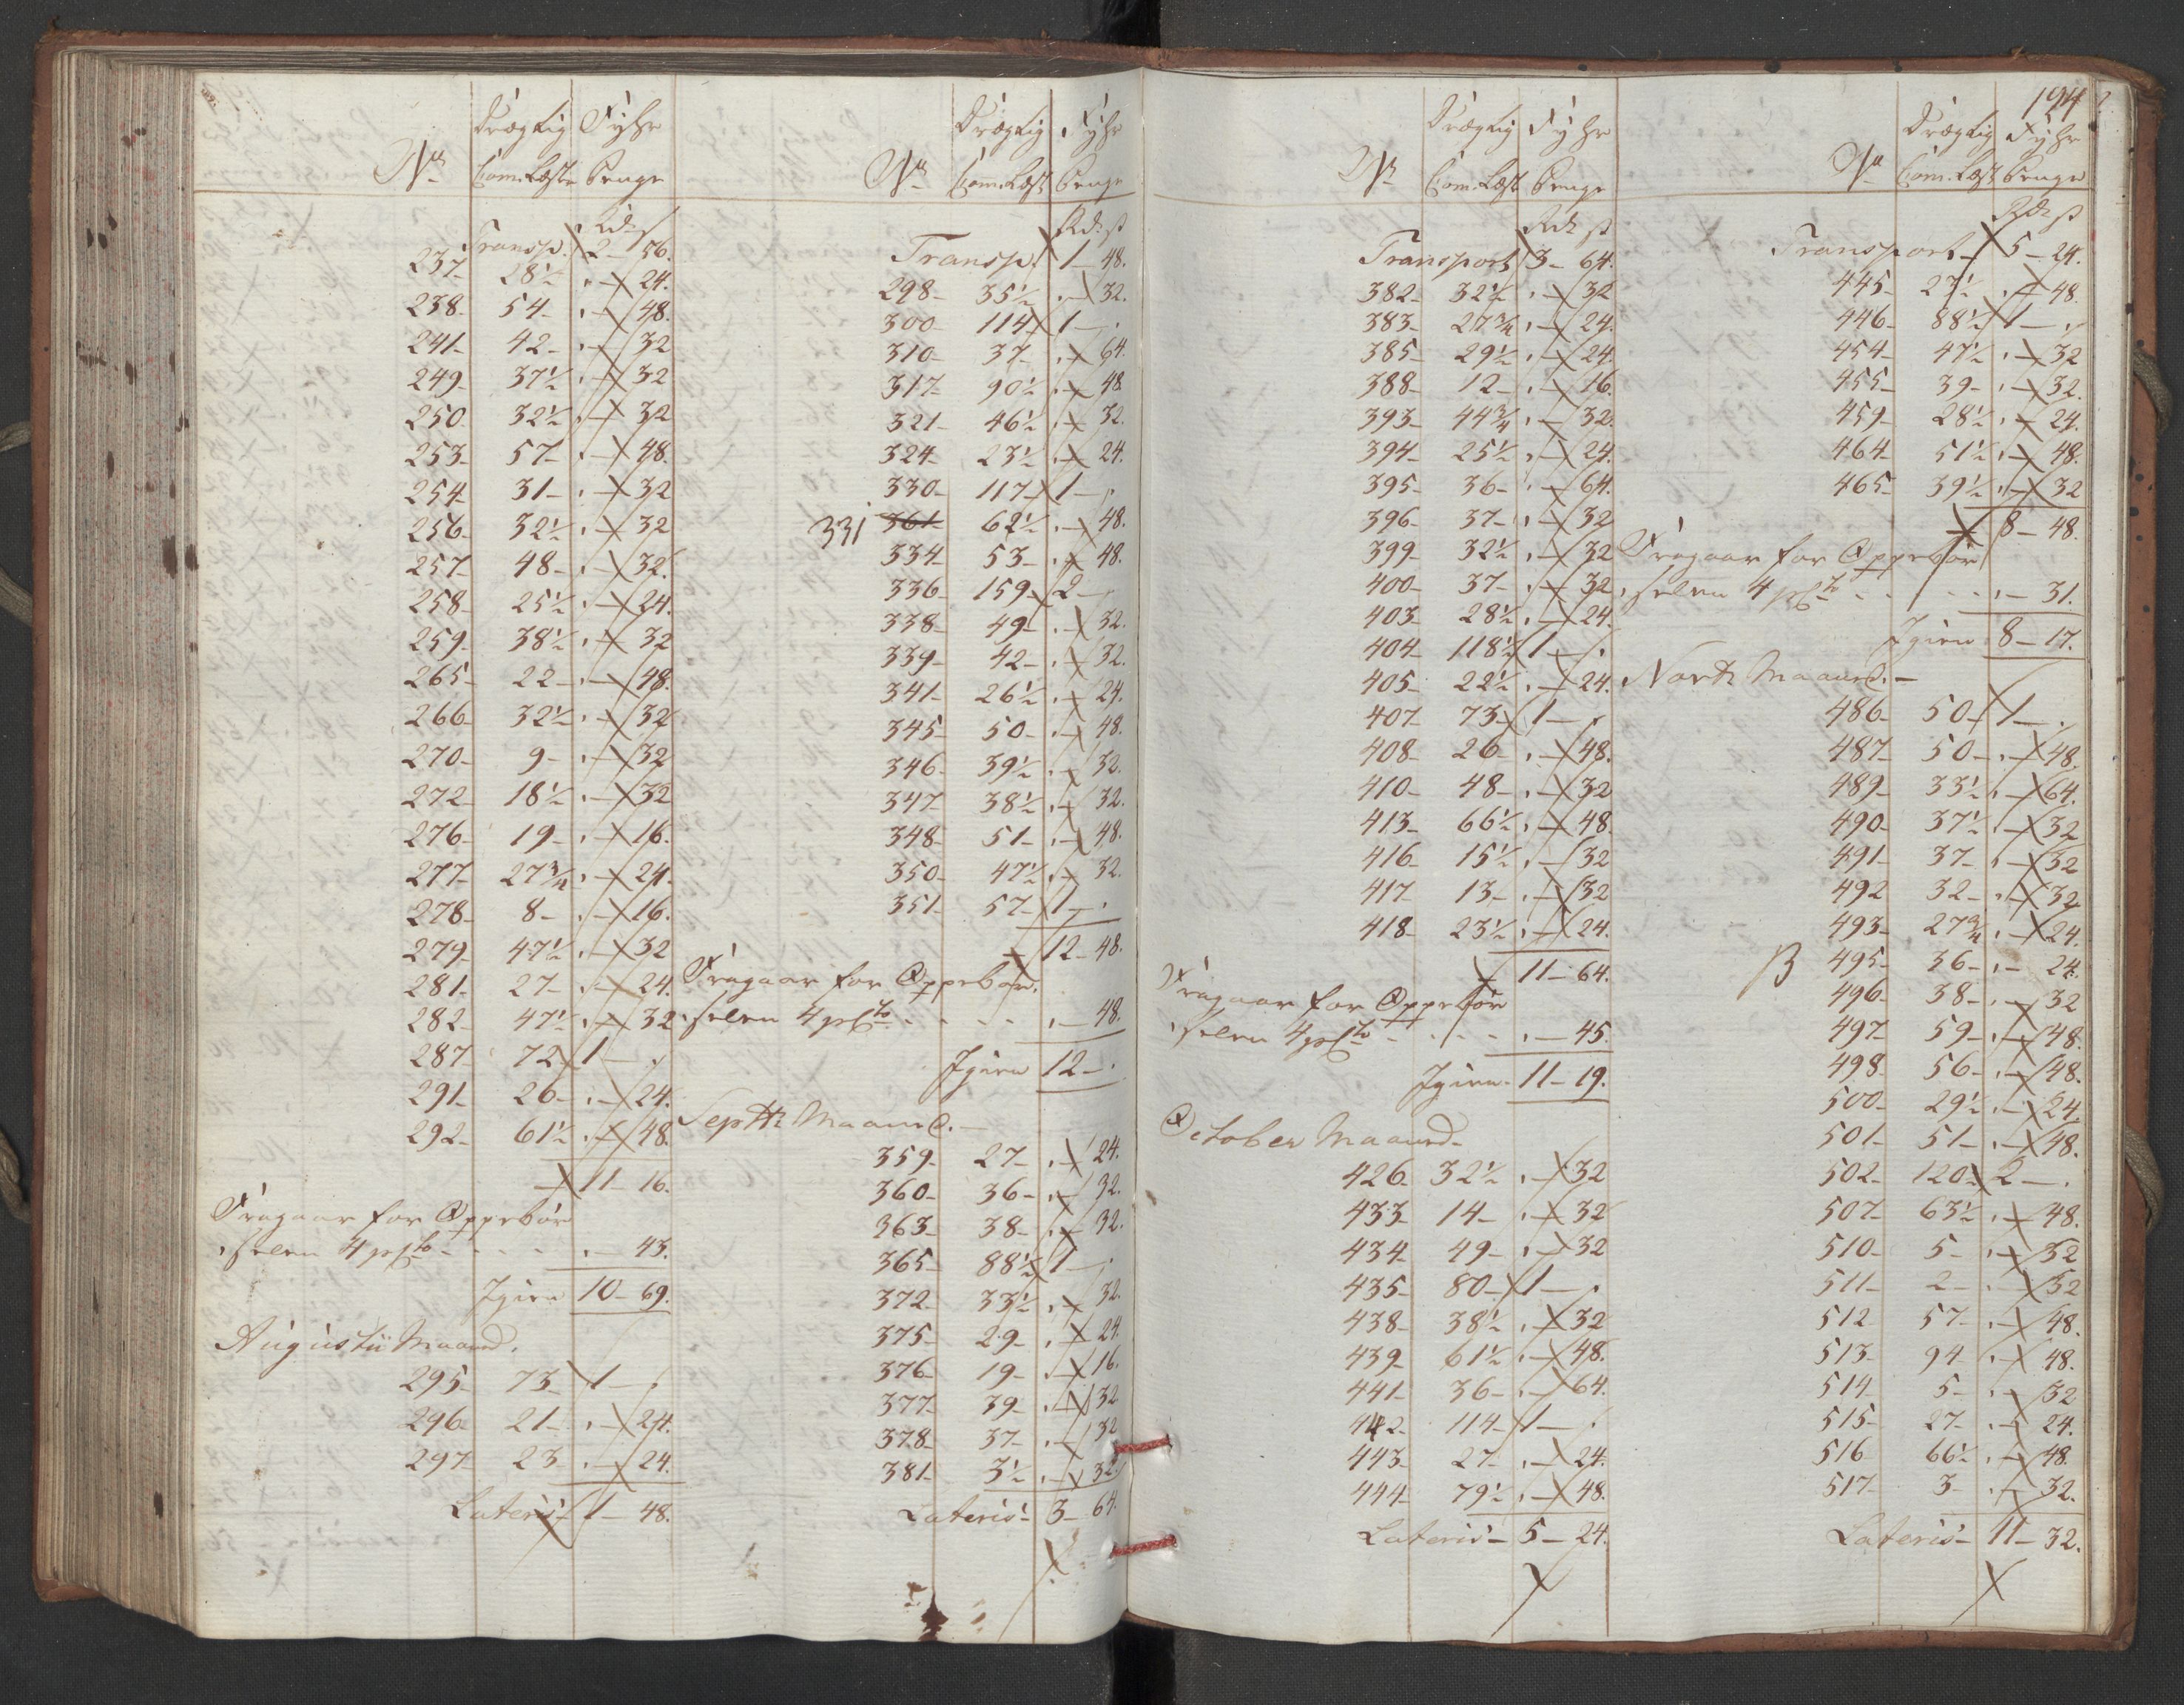 194
No Drægtig Fyhr
Com. Læste Penge
Rd. s
Transp. 2 - 56.
237- 28½ „ - 24.
238- 54- „ - 48.
241- 42- „ - 32
249- 37½ „ - 32
250- 32½ „ - 32
253- 57- „ - 48.
254- 31- „ - 32
256- 32½ „ - 32
257- 48- „ - 32.
258- 25½ „ - 24.
259- 38½ „ - 32
265- 22- „ - 48.
266- 32½ „ - 32
270- 9- „ - 32
272- 18½ „ - 32
276- 19- „ - 16.
277- 27¾ „ - 24.
278- 8- „ - 16.
279- 47½ „ - 32
281- 27- „ - 24.
282- 47½ „ - 32
287- 72- 1 - „
291- 26- „ - 24.
292- 61½ „ - 48.
11 - 16.
Fragaar for Oppebør
selen 4 pCto - - - „ - 43.
Igien 10 - 69.
Augustii Maaned.
295- 73- 1 - „
296- 21- „ - 24.
297- 23 „ - 24.
Lateris 1 - 48.
No Drægtig Fyhr
Com. Læst Penge
Rd. s
Transp. 1 - 48.
298- 35½ „ - 32.
300- 114- 1 - „
310- 37- „ - 64.
317- 90½ „ - 48
321- 46½ „ - 32.
324- 23½ „ - 24.
330- 117- 1 - „
331 361 62½ „ - 48.
334- 53- „ - 48.
336- 159- 2 - „
338- 49- „ - 32.
339- 42- „ - 32.
341- 26½ „ - 24.
345- 50- „ - 48.
346- 39½ „ - 32.
347 38½ „ - 32.
348- 51- „ - 48.
350- 47½ „ - 32.
351- 57- 1 - „
12 - 48.
Fragaar for Oppebør
selen 4 pCto - - - - „ - 48.
Igien 12 - „
Septbr Maaned.
359- 27- „ - 24.
360- 36- „ - 32.
363- 38- „ - 32.
365- 88½ 1 - „
372- 33½ „ - 32.
375- 29- „ - 24
376- 19- „ - 16.
377- 39- „ - 32
378- 37- „ - 32
381- 3½ „ - 32
Lateris 3 - 64.
No Drægtig Fyhr
Com. Læst Penge
Rd. s
Transport 3 - 64.
382- 32½ „ - 32
383- 27¾ „ - 24.
385- 29½ „ - 24.
388- 12- „ - 16.
393- 44¾ „ - 32.
394- 25½ „ - 24.
395- 36- „ - 64.
396- 37- „ - 32
399- 32½ „ - 32
400- 37- „ - 32
403- 28½ „ - 24.
404- 118½ 1 - „
405- 22½ „ - 24.
407- 73- 1 - „
408- 26- „ - 48.
410- 48- „ - 32
413- 66½ „ - 48.
416- 15½ „ - 32
417- 13- „ - 32
418- 23½ „ - 24.
11 - 64.
Fragaar for Oppebør
selen 4 pCto - - - - „ - 45.
Igien 11 - 19.
October Maaned.
426- 32½ „ - 32
433- 14- „ - 32
434- 49- „ - 32
435- 80- 1 - „
438- 38½ „ - 32
439- 61½ „ - 48.
441- 36- „ - 64.
442- 114- 1 - „
443- 27- „ - 24.
444- 79½ „ - 48.
Lateris 5 - 24.
No Drægtig Fyhr
Com. Læst Penge
Rd. s
Transport 5 - 24.
445- 27½ „ - 48.
446- 88½ 1 - „
454- 47½ „ - 32
455- 39- „ - 32.
459- 28½ „ - 24.
464- 51½ „ - 48.
465- 39½ „ - 32
8 - 48.
Fragaar for Oppebør
selen 4 pCto - - - „ - 31.
Igien 8 - 17.
Novbr Maaned.
486- 50- 1 - „
487- 50- „ - 48.
489- 33½ „ - 64.
490- 37½ „ - 32
491- 37- „ - 32
492 32- „ - 32
493- 27¾ „ - 24.
B 495- 36- „ - 24.
496- 38- „ - 32
497- 59- „ - 48.
498- 56- „ - 48.
500- 29½ „ - 24.
501- 51- „ - 48.
502- 120- 2 - „
507- 63½ „ - 48.
510- 5- „ - 32
511- 2- „ - 32
512 57- „ - 48.
513- 94- „ - 48.
514- 5- „ - 32
515- 27- „ - 24.
516 66½ „ - 48.
517- 3- „ - 32.
Lateris 11 - 32.